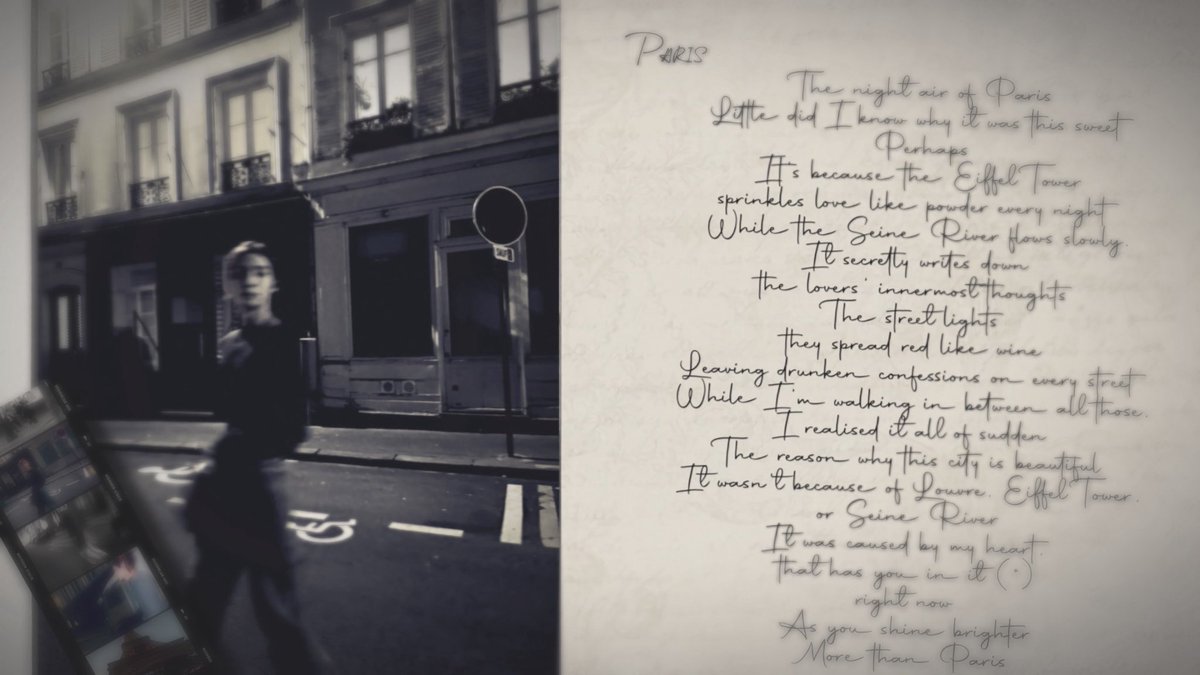 Paris
The night air of Paris
Little did I know why it was this sweet
Perhaps
It's because the Eiffel Tower
sprinkles love like powder every night
While the Seine River flows slowly.
It secretly writes down
the lovers' innermost thoughts
The street lights
they spread red like wine
Leaving drunken confessions on every street
While I'm walking in between all those.
I realised it all of sudden
The reason why this city is beautiful
It wasn't because of Louvre. Eiffel Tower.
or Seine River
It was caused by my heart.
that has you in it (·)
right now
As you shine brighter
More than Paris